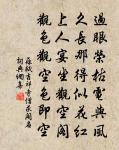 過眼榮枯電與風
久長那得似花紅
上人宴坐觀空閣
觀色觀空色即空
蘇軾吉祥寺僧求閣名
詞典網